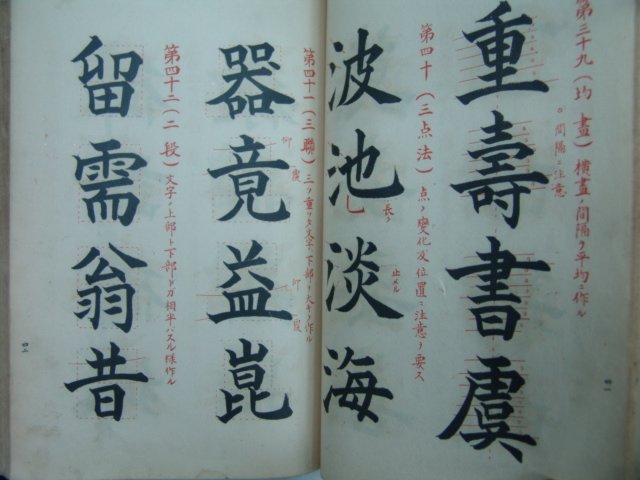 第三十九（均畫）横畫ノ間隔ヲ平均ニ作ル
間隔ニ注意
重壽書虞
第四十（三点法）点ノ變化及位置ニ注意ヲ要ス
長ク
止メル
波池淡海
四一
第四十一（三聯）三ツ重ツタ文字ノ下部ヲ大キク作ル
仰覆
仰覆
器竟益崑
第四十二（二段）文字ノ上部ト下部トガ相半バスル様作ル
留需翁昔
四二